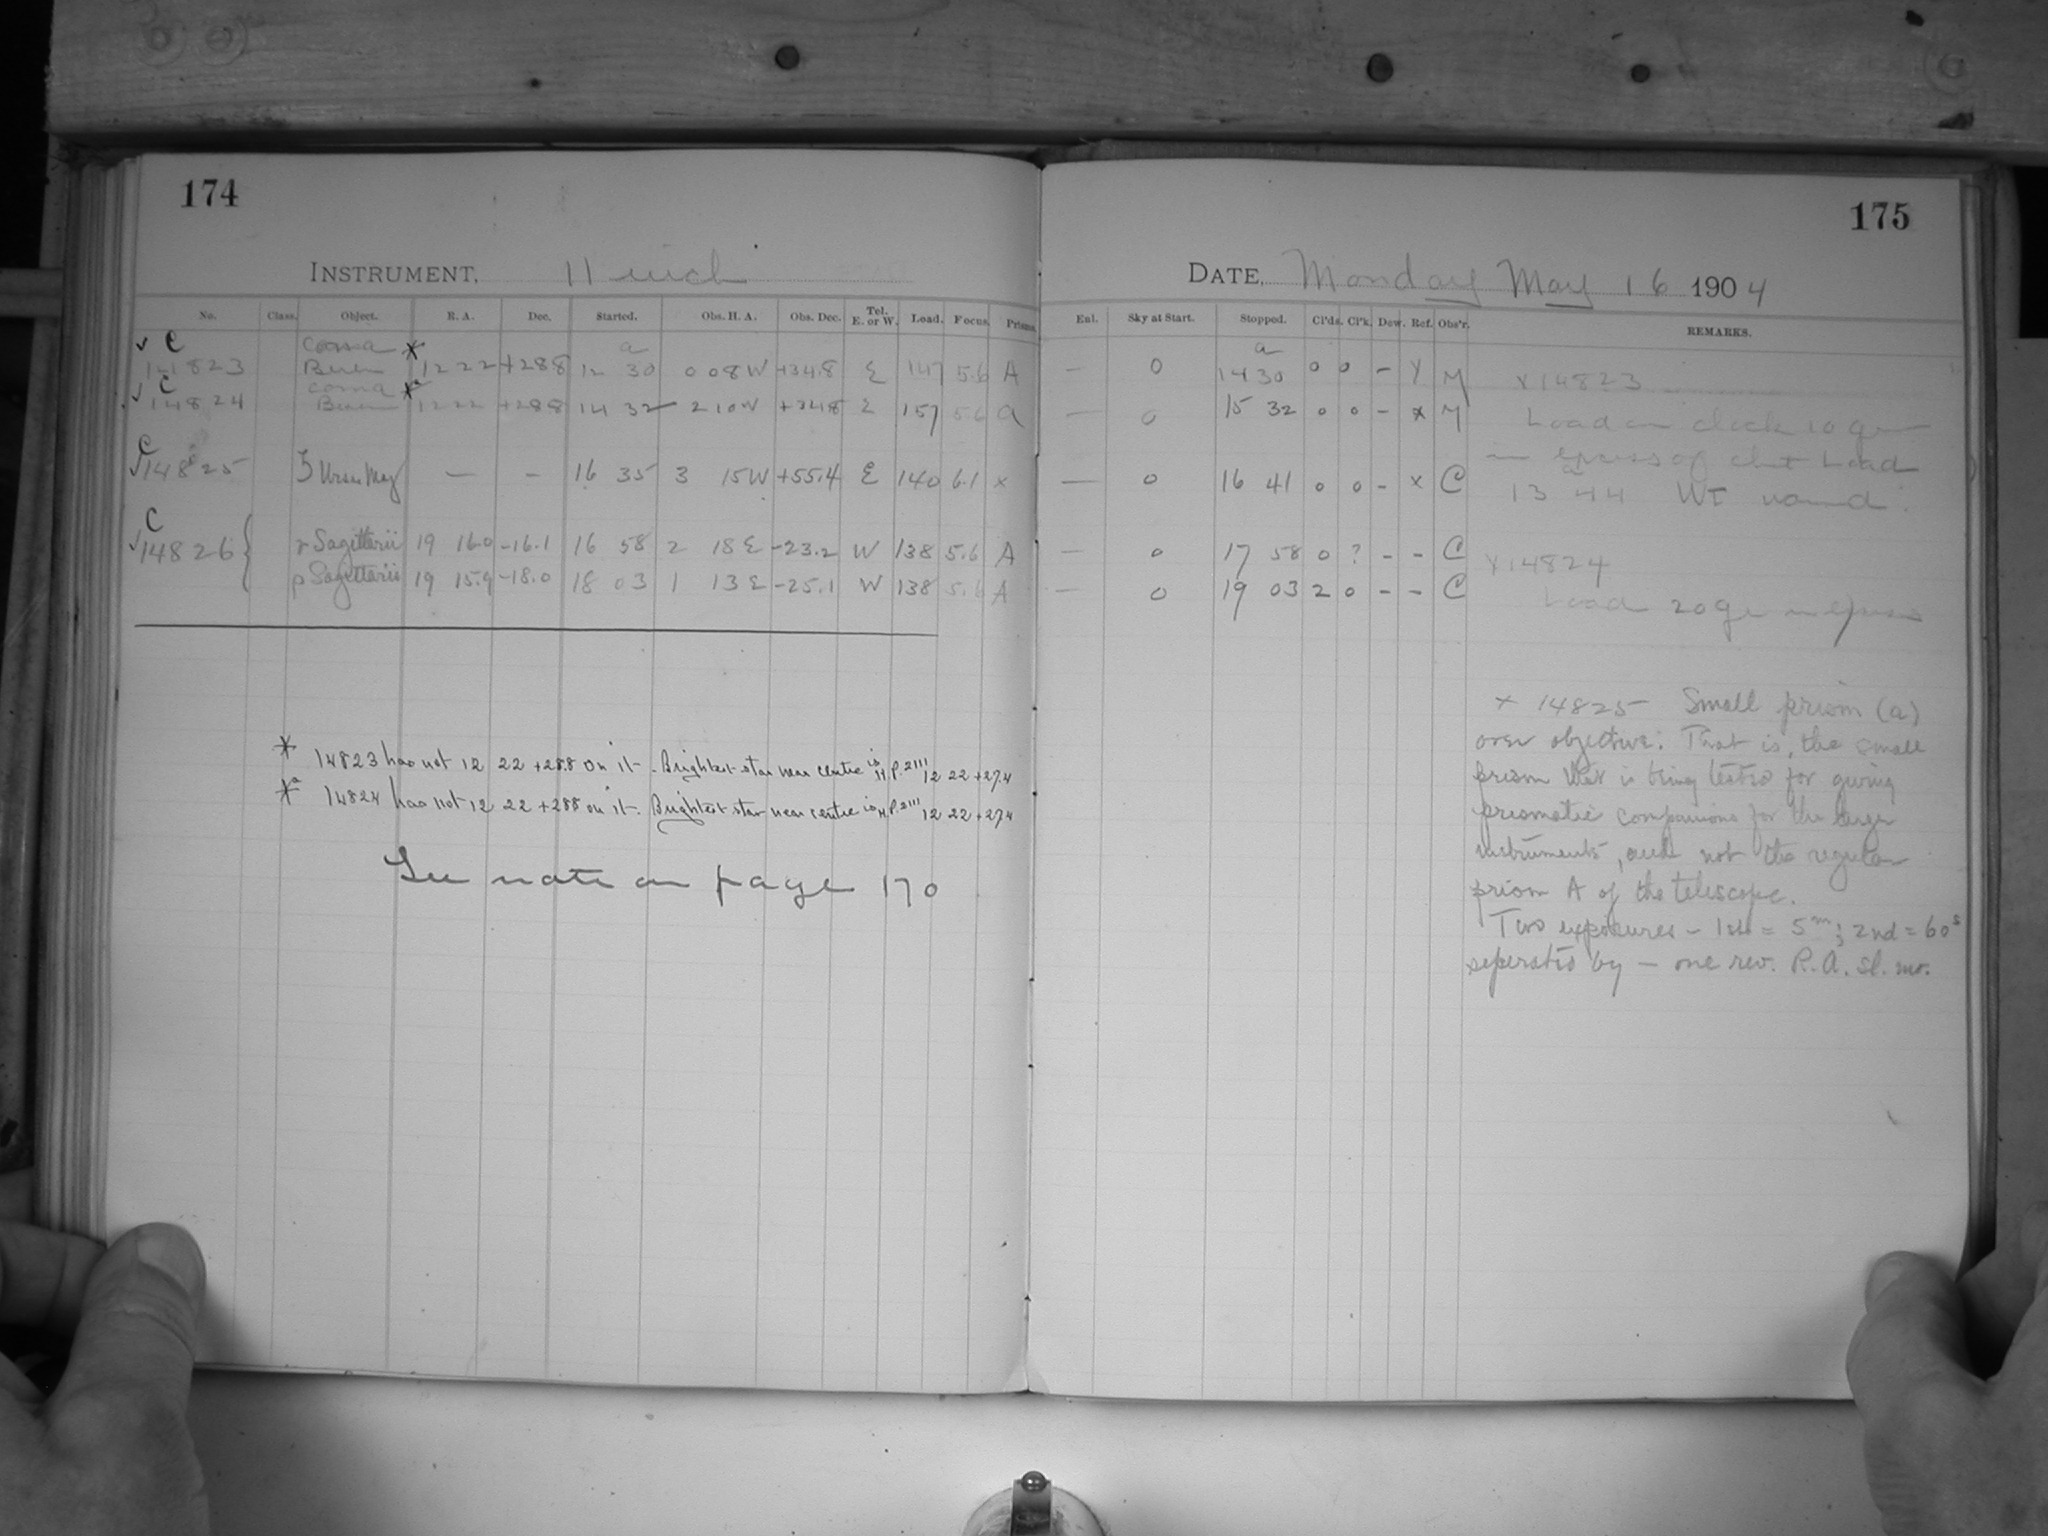 174
INSTRUMENT, 11 inch
No. Class. Object. R. A. Dec. Started. Obs. H. A. Obs. Dec. Tel. E. or W. Load. Focus. Prisms.
√ C
14823 Coma Beren * 12 22 +28.8 12 a 30 0 08 W +34.8 E 147 5.6 A
√ C
14824 Coma Beren *a 12 22 +28.8 14 32 2 10 W +34.8 E 157 5.6 a
C
√14825 ζ Ursae Maj — – 16 35 3 15 W +55.4 E 140 6.1 x
C
√14826 { r Sagittarii 19 16.0 -16.1 16 58 2 18 E -23.2 W 138 5.6 A
ρ Sagittarii 19 15.9 -18.0 18 03 1 13 E -25.1 W 138 5.6 A
* 14823 has not 12 22 +28.8 on it. Brightest star near centre is H.P. 2111 12 22 +27.4
*a 14824 has not 12 22 +28.8 on it. Brightest star near centre is H.P. 2111 12 22 +27.4
See note on page 170
175
DATE, Monday May 16 1904
Enl. Sky at Start. Stopped. Cl'ds. Cl'k. Dew. Ref. Obs'r. REMARKS.
– 0 14 a 30 0 0 – x M
— 0 15 32 0 0 – x M
— 0 16 41 0 0 – x C
— 0 17 58 0 ? – – C
— 0 19 03 2 0 – – C
x 14823
Load on clock 10 gr
in excess of Load
13 a 44 Wt wound.
x 14824
Load 20 gr in excess
x 14825 Small prism (a)
over objective. That is, the small
prism that is being tested for giving
prismatic companions for the larger
instruments, and not the regular
prism A of the telescope.
Two exposures – 1st = 5m; 2nd = 60s
seperated by – one rev. R.A. sl. mo.